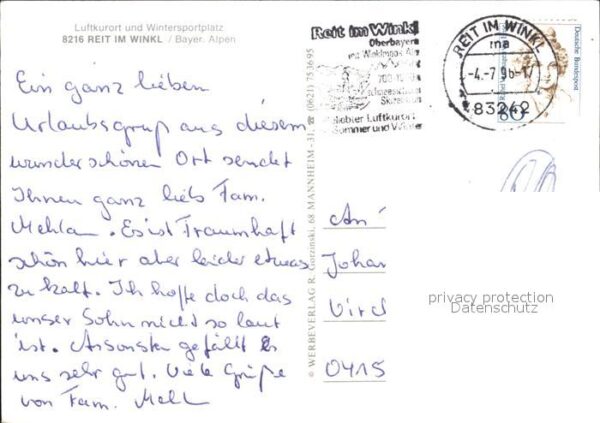 Luftkurort und Wintersportplatz
8216 REIT IM WINKL / Bayer. Alpen
Ein ganz lieben
Urlaubsgruß aus diesem
wunderschönen Ort sendet
Ihnen ganz liebs Fam.
Es ist Traumhaft
schön hier aber leider etwas
zu kalt. Ich hoffe doch das
unser Sohn nicht so laut
ist. Ansonsten gefällt es
uns sehr gut. Viele Grüße
von Fam.
© WERBEVERLAG R. Gorzinski, 68 MANNHEIM-31, ☎ (0621)
Reit im Winkl
Oberbayern
700-1
Skizentrum
beliebter Luftkurort
Sommer und Winter
REIT IM WINKL
ma
-4.-7.96-1
83242
Deutsche Bundespost
60
An
Johan
Virch
0415
privacy protection
Datenschutz